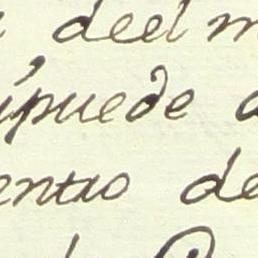 deel m
puede a
entro de